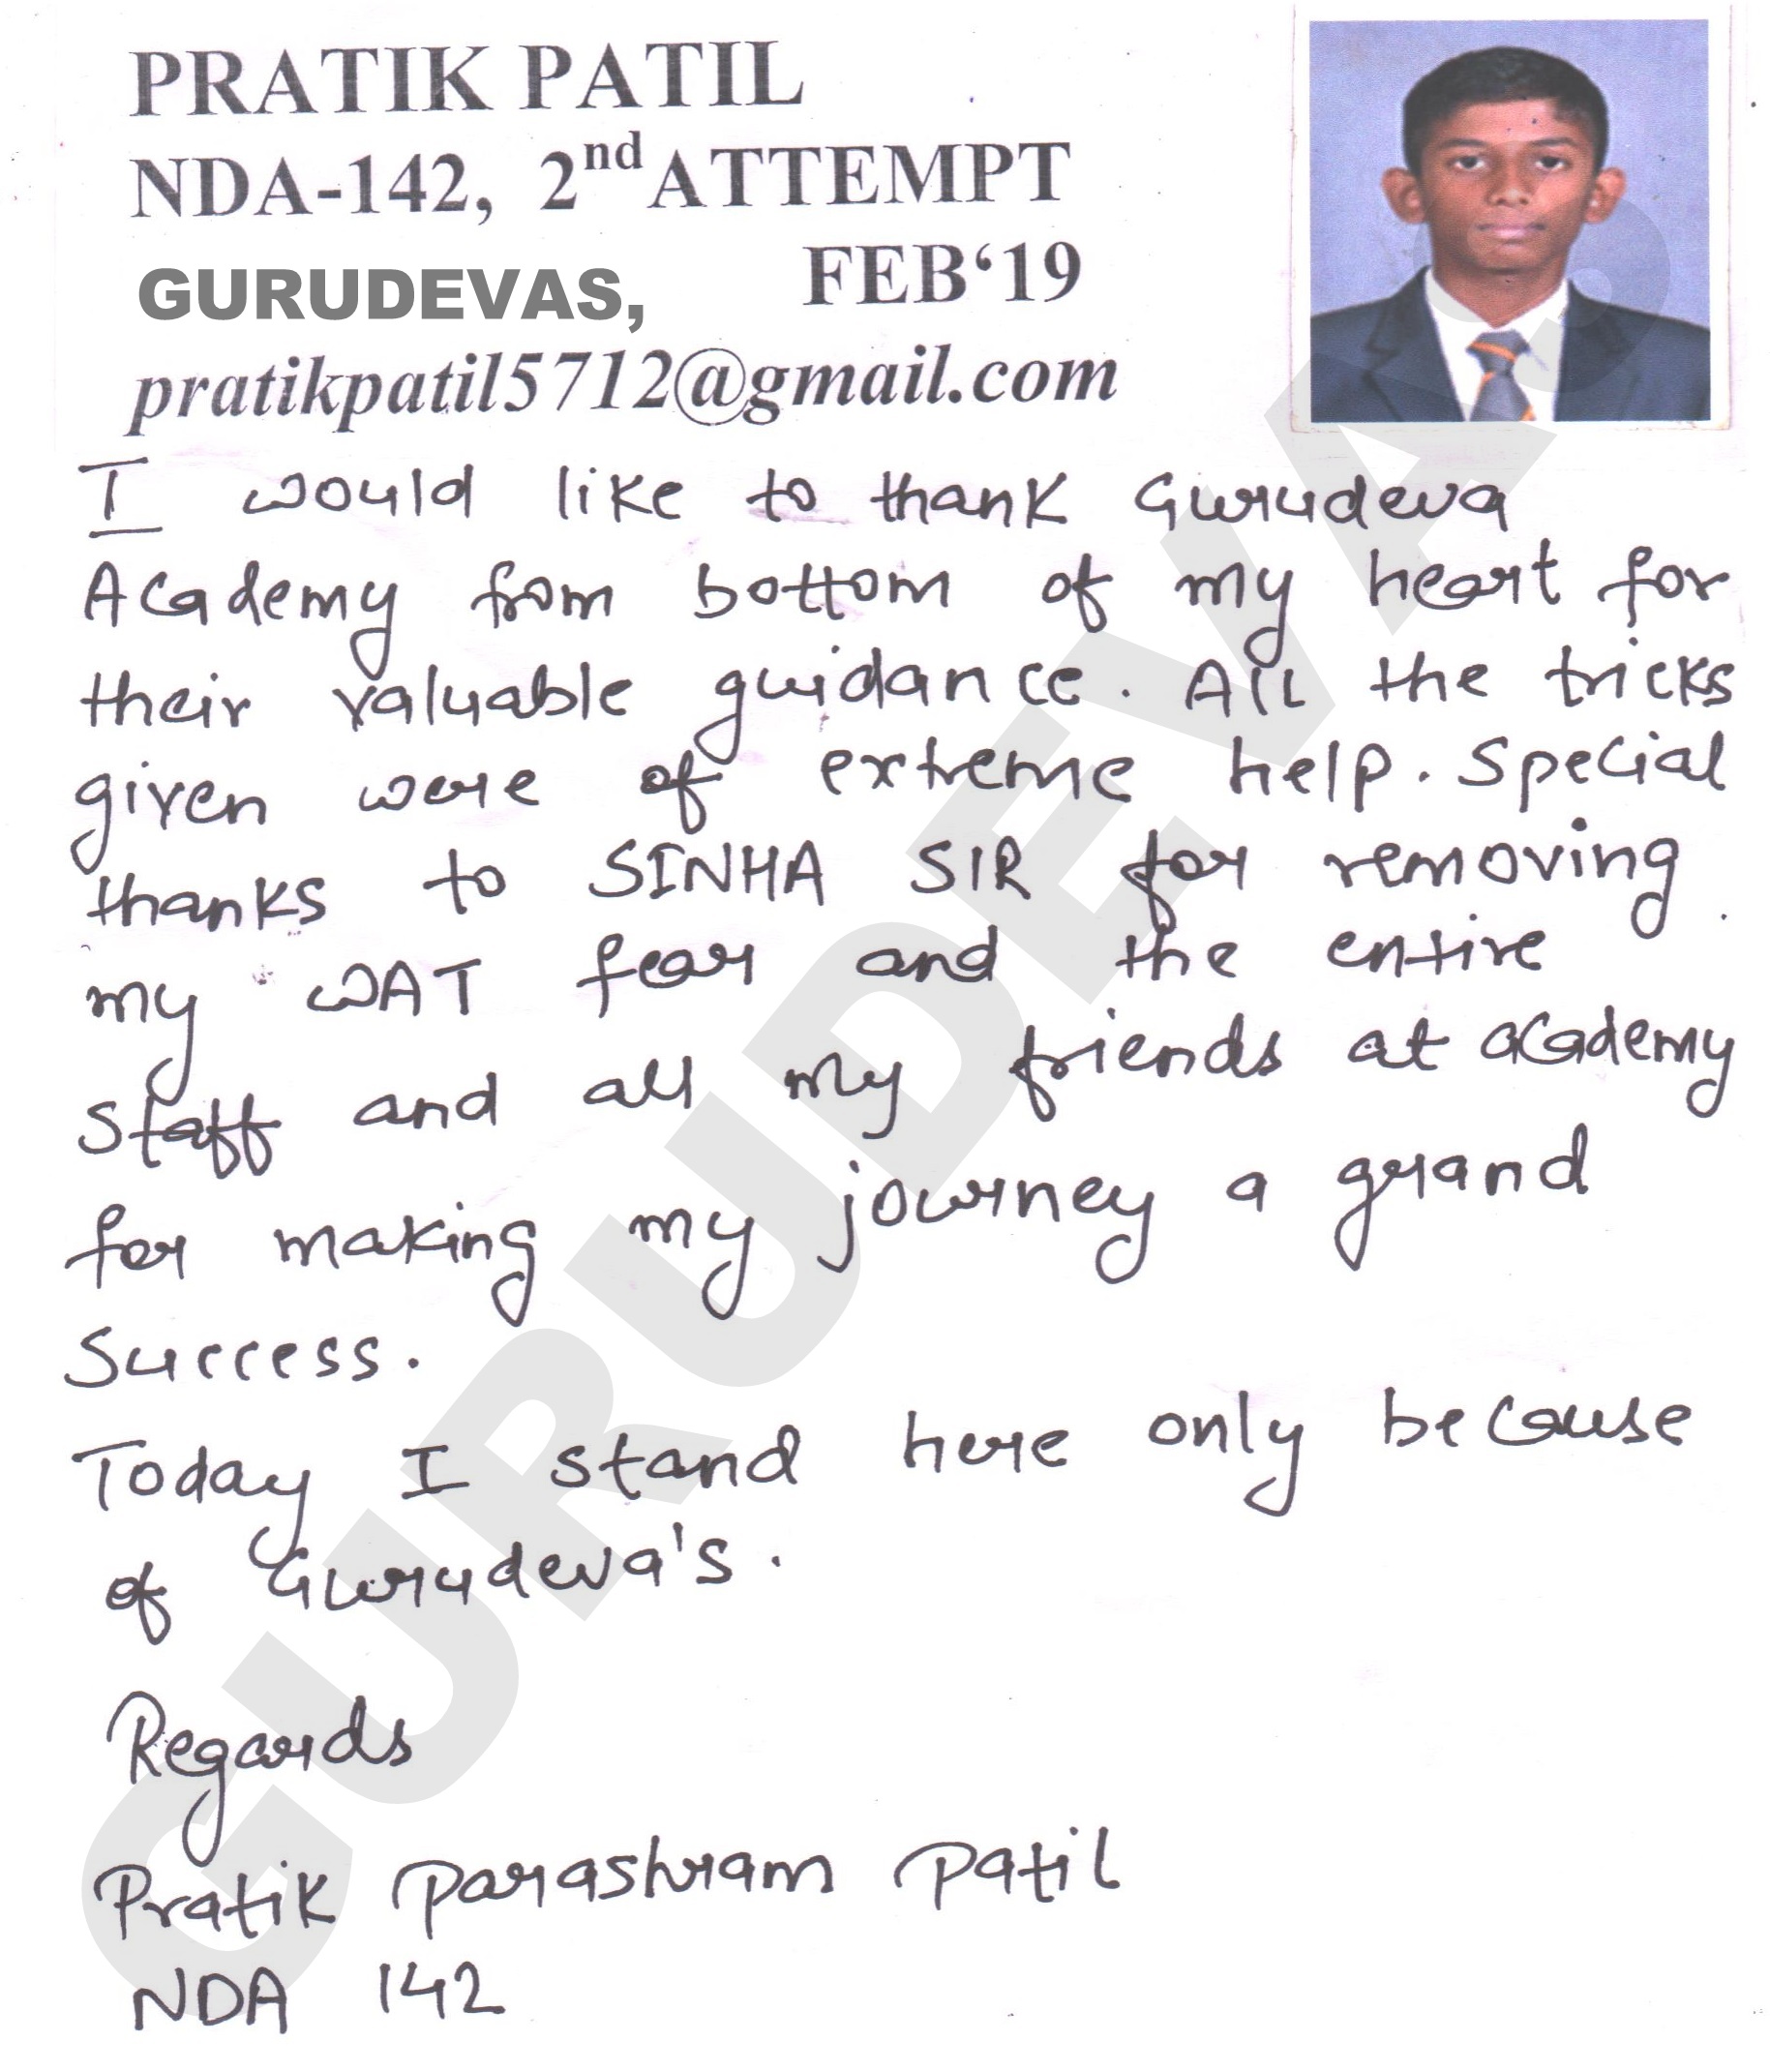 PRATIK PATIL
NDA-142, 2nd ATTEMPT
GURUDEVAS, FEB‘19
pratikpatil5712@gmail.com
I would like to thank Gurudeva
Academy from bottom of my heart for
their valuable guidance. All the tricks
given were of extreme help. Special
thanks to SINHA SIR for removing
my WAT fear and the entire
staff and all my friends at academy
for making my journey a grand
success.
Today I stand here only because
of Gurudeva's.
Regards
Pratik Parashram Patil
NDA 142
GURUDEVAS